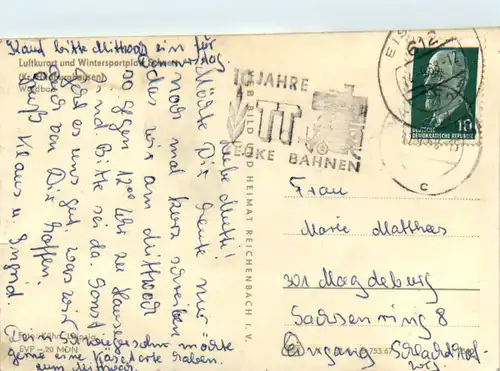 Kauf bitte Mittwoch ein für
Donnerstag.
Luftkurort und Wintersportplatz
(Kr. Hildburghausen)
Waldbad
Liebe Mutti!
Möchte Dir heute nur
noch mal kurz schreiben
das wir am Mittwoch
so gegen 12⁰⁰ Uhr zu Hause
sind. Bitte sei da. Sonst
geht es uns gut was wir
auch von Dir hoffen.
Gruß Klaus u. Ingrid
Dein Schwiegersohn möchte
gerne eine Käsetorte haben.
zum Mittwoch.
EVP –20 MDN
BILD UND HEIMAT REICHENBACH I. V.
10 JAHRE
TT
BAHNEN
612
c
10
DEUTSCHE
DEMOKRATISCHE REPUBLIK
Frau
Marie Matthias
301 Magdeburg
Sachsenring 8
Eingang